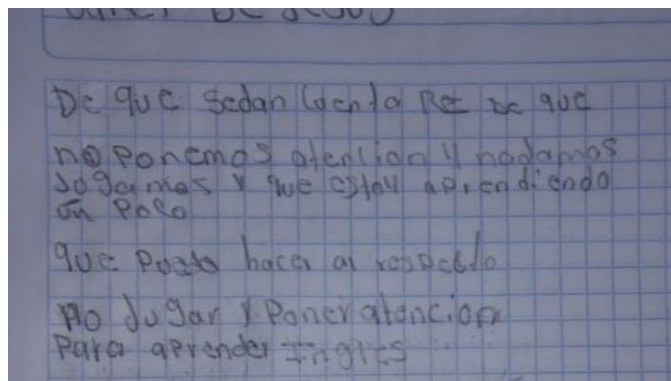 De que sedan Cuenta Re de que
no ponemos atencion y nadamos
Jogamos y que estoy aprendiendo
un Poco
que Puedo hacer al respecto
No Jugar y Poner atencion
Para aprender Ingles